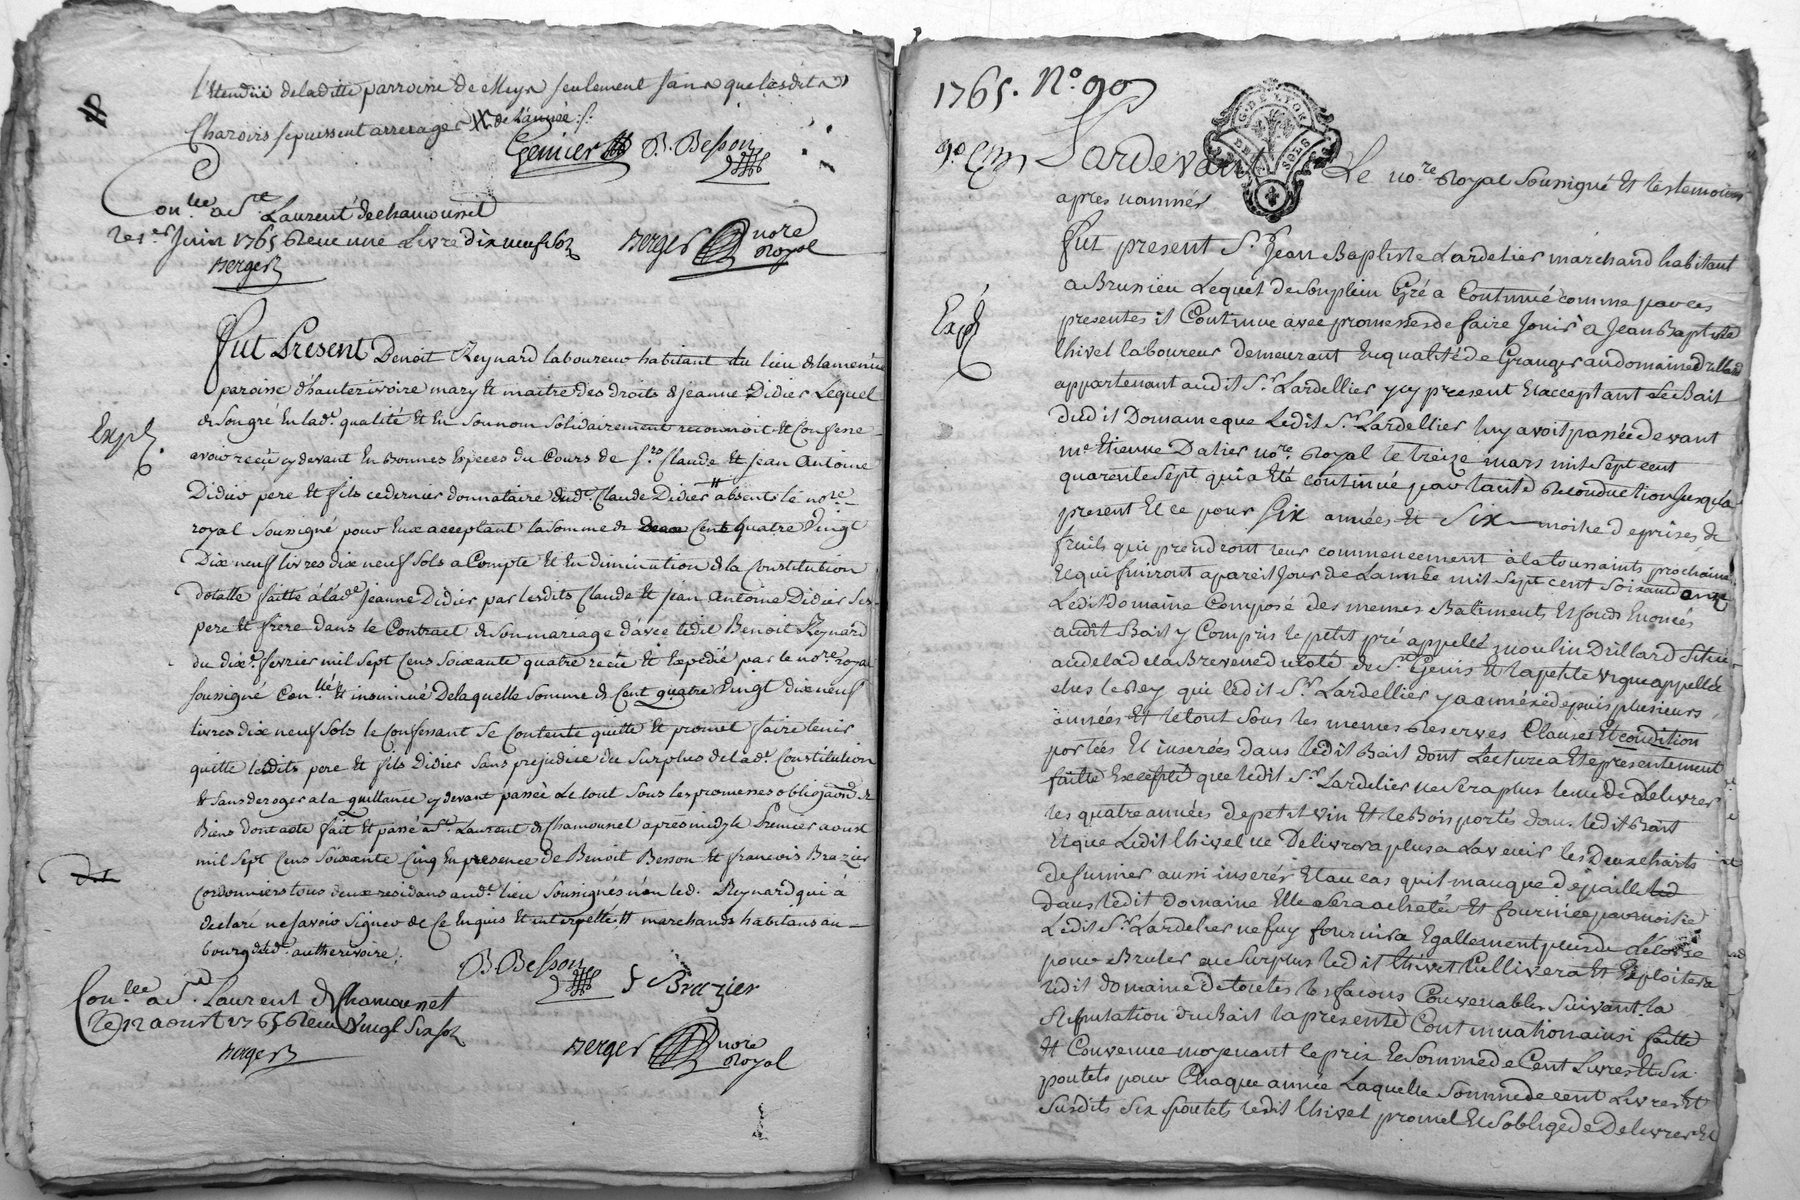 l'Etendüe de laditte parroisse de Meys seulement sans que lesdits
Charois se puissent arrerager de l'année
Genier B. Besson
Con.llé a S.t Laurent de chamousset
le 1.er Juin 1765 Receu une Livre dix neuf sols
Berger
Berger nore Royal
Fut Present Benoit Reynard laboureur habitant du lieu de la
paroisse d'hauterivoire mary et maitre des droits de jeanne Didier Lequel
de son gré En lad.e qualité et En son nom solidairement reconnoit et Confesse
Exp.é
avoir receu cy devant En bonnes Especes du Cours de s.rs Claude et Jean Antoine
Didier pere et fils ce dernier donnataire dud.t Claude Didier absents le nore
royal soussigné pour Eux acceptant la somme de Cent quatre vingt
Dix neuf livres dix neuf sols a Compte et En diminution de la Constitution
dotalle faitte à la d.e Jeanne Didier par lesdits Claude et Jean Antoine Didier ses
pere et frere dans le Contract de son mariage d'avec ledit Benoit Reynard
du dix.e fevrier mil sept Cens soixante quatre receu et Expedié par le no.re royal
soussigné Con.llé et insinüé De laquelle somme de Cent quatre vingt dix neuf
livres dix neuf sols le Confessant se Contente quitte et promet faire tenir
quitte lesdits pere et fils Didier sans prejudice du surplus de lad.e Constitution
& sans deroger a la quittance cy devant passée Le tout sous les promesses obligaon &
Biens dont acte fait et passé a S.t Laurent de Chamousset apres midy le Premier aoust
mil sept Cens soixante Cinq En presence de Benoit Besson et francois Brazier
Cordonniers tous deux residans aud.t lieu soussignés non led. Reynard qui à
declaré ne savoir signer de Ce Enquis et interpellé, # marchands habitans au
bourg dud.t autherivoire.
B. Besson f Brazier
Con.llé a S.t Laurent de Chamousset
le 12 aoust 1765 Receu vingt six sols
Berger
Berger nore Royal
1765. N.o 90
G. DE LYON
DE SOLS
Pardevant Le no.re Royal soussigné Et les temoins
apres nommés
Fut present S.r Jean Baptiste Lardelier marchand habitant
a Brusieu Lequel de son plein Gré a Continué comme par ces
Exp.é
presentes il Continue avec promesses de faire Jouir a Jean Baptiste
Chivet laboureur demeurant En qualité de Granger au domaine d'illard
appartenant audit S.r Lardellier y cy present Et acceptant Le Bail
dudit Domaine que Ledit S.r Lardellier luy avoit passée devant
me Etienne Dalier no.re Royal le treize mars mil sept cent
quarente sept qui a Eté continué par tacite Reconduction Jusqu'a
present Et ce pour Six années Et Six moitié d'e prises de
fruits qui prendront leur commencement à la toussaints prochaine
Et qui finiront a pareil Jour de L'année mil sept cent soixante onze
Ledit domaine Composé des memes Batiments Et fonds Enoncés
audit Bail y Compris le petit pré appellé moulin D'illard situé
au dela de la Brevenne du coté de S.t Genis Et la petite vigne appellée
ches le Rey que ledit S.r Lardellier y a annéxé depuis plusieurs
années Et le tout sous les memes Reserves Clauses Et condition
portées Et inserées dans ledit Bail dont Lecture a Eté presentement
faitte Excepté que ledit S.r Lardelier ne sera plus tenu de Delivrer
les quatre années de petit vin Et le Bois portés dans ledit Bail
Et que Ledit Chivet ne Delivrera plus a L'avenir les deux charts
de fumier aussi inserés Et au cas qu'il manque d'e paille
dans ledit domaine Elle sera achetée Et fournie par moitié
Ledit S.r Lardelier ne luy fournira Egallement plus de
pour Bruler au surplus ledit Chivet Cultivera Et Exploitera
ledit domaine De toutes les facons Convenables suivant la
stipulation du Bail la presente Continuation ainsi faitte
Et Convenue moyenant le prix Et Somme de Cent Livres Et Six
poulets pour Chaque année Laquelle Somme de cent Livres Et
susdits Six poulets ledit Chivet promet Et s'oblige de Delivrer Et